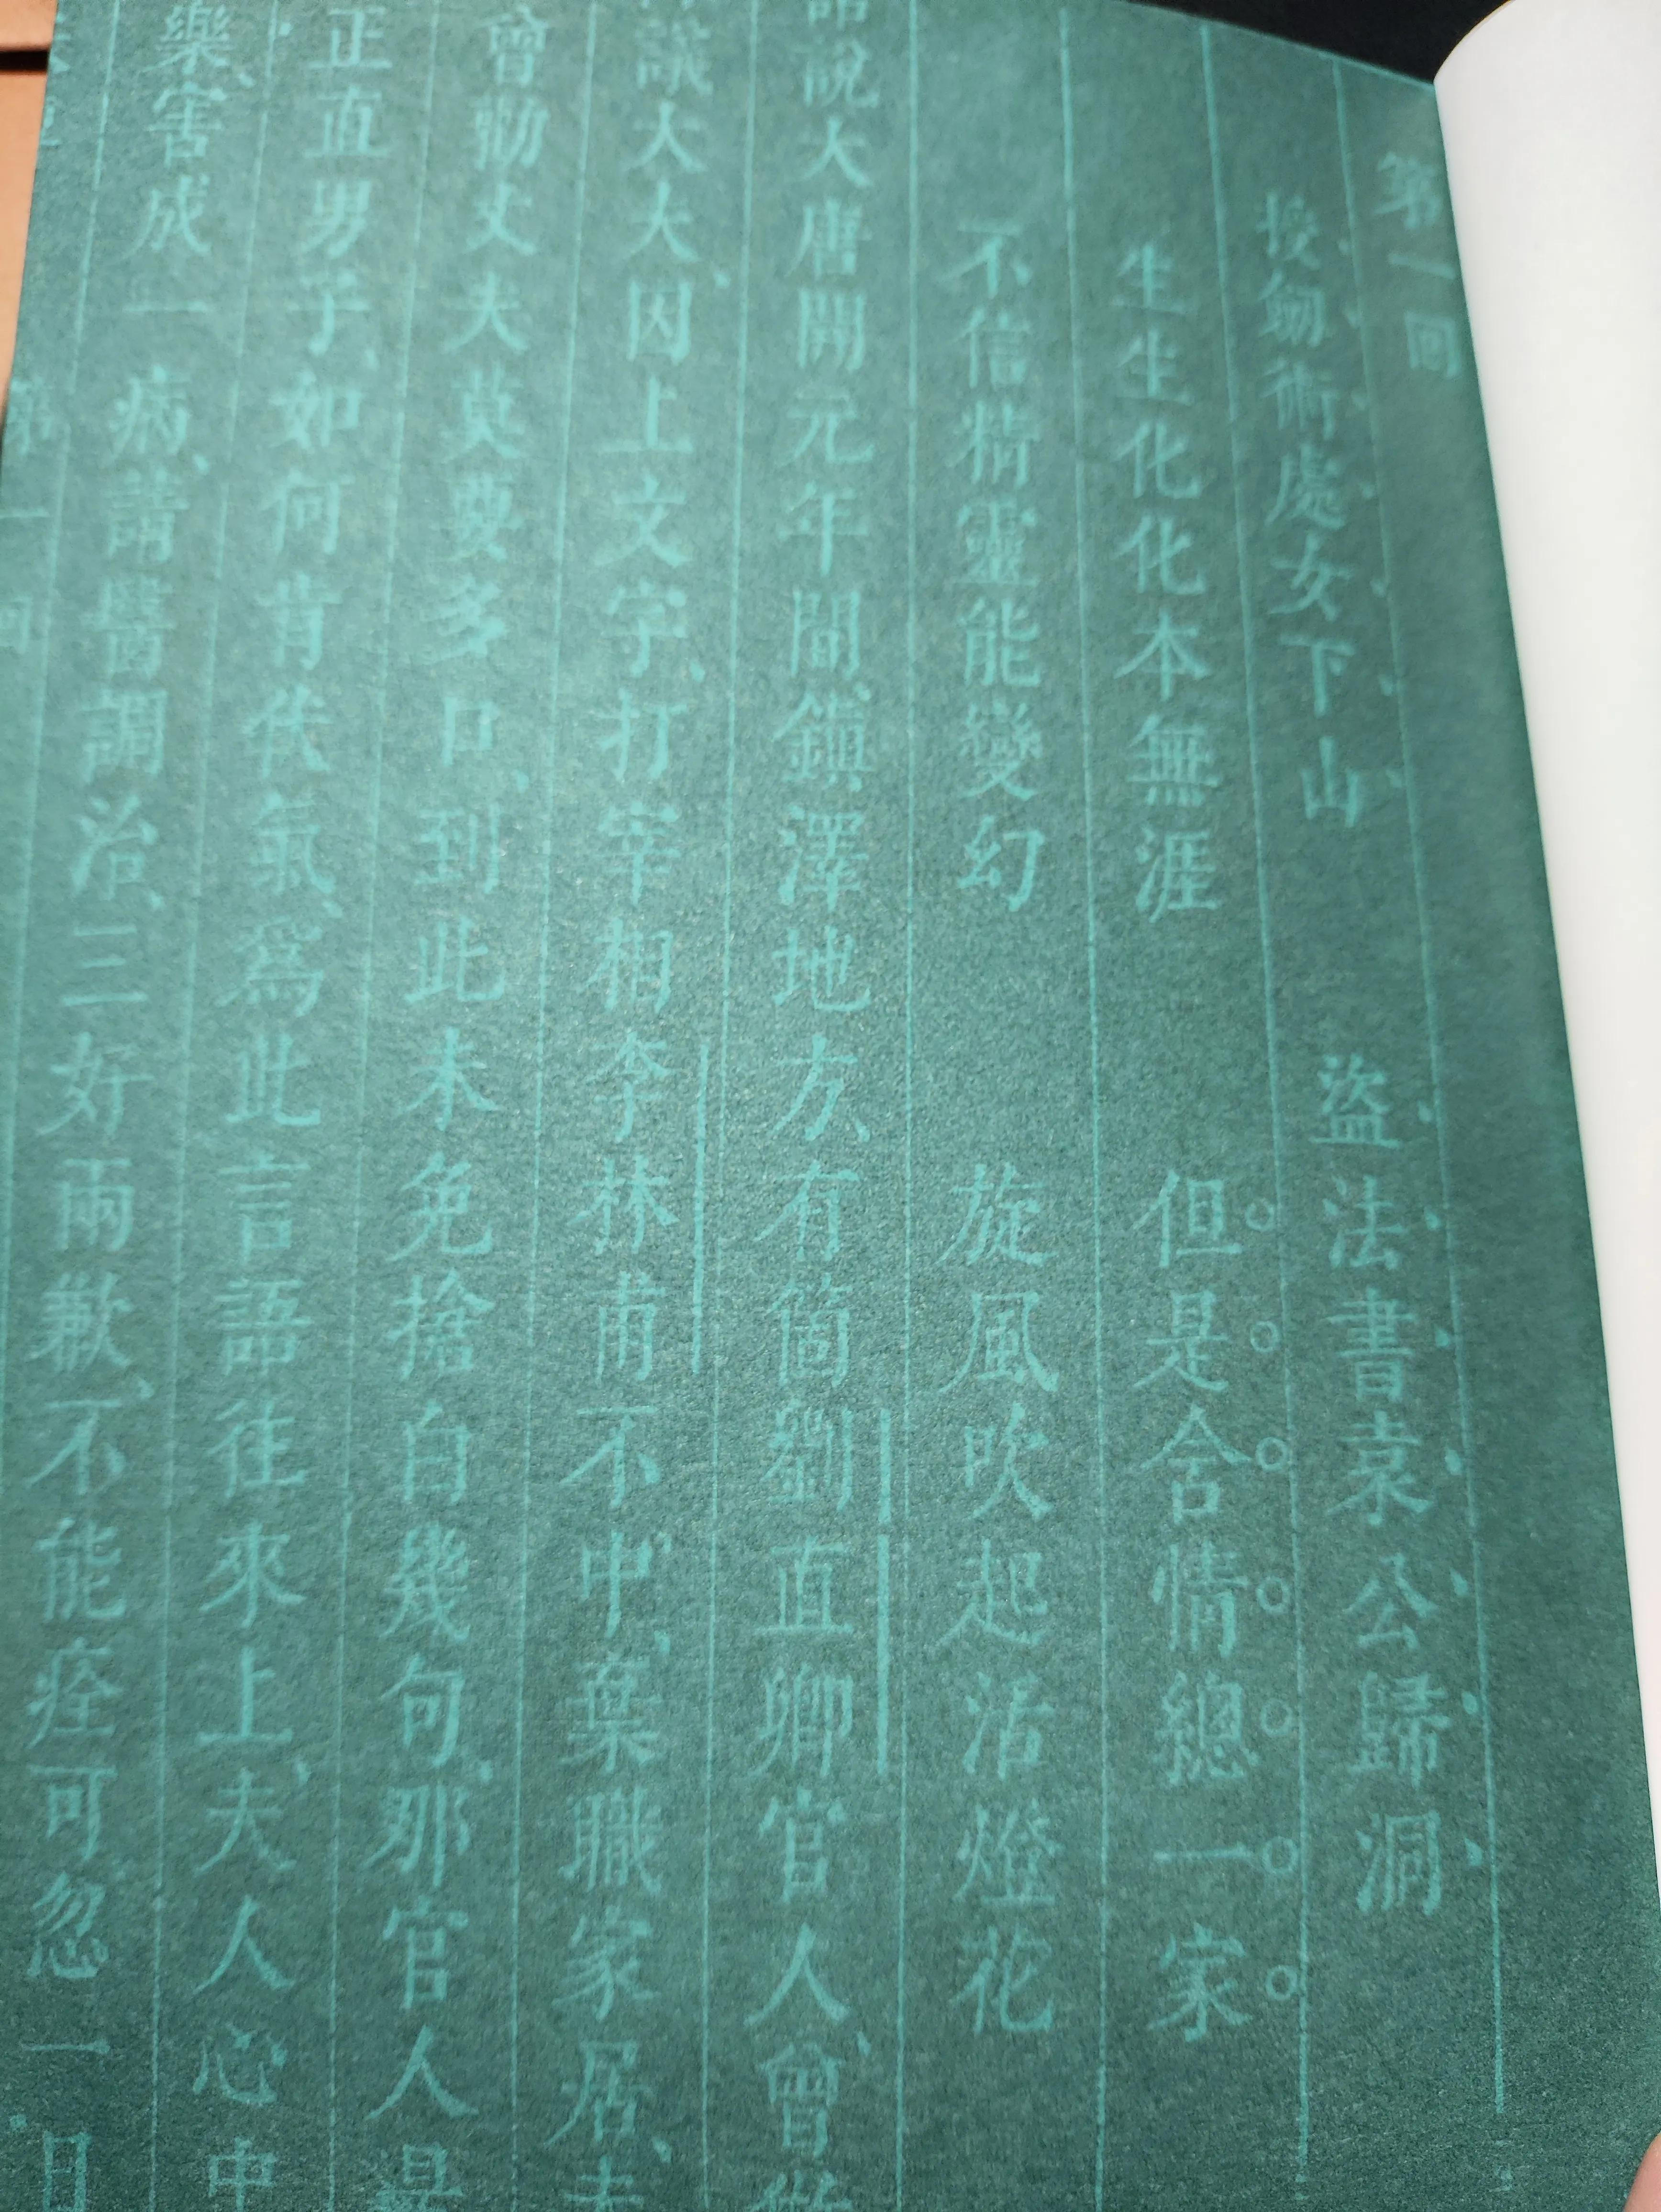 第一回
授劒術處女下山 盜法書袁公歸洞
生生化化本無涯 但是含情總一家
不信精靈能變幻 旋風吹起活燈花
話說大唐開元年間、鎭澤地方、有箇劉直卿官人、曾
議大夫、因上文字、打宰相李林甫不中、葉職家居、夫
曾勸丈夫莫要多口、到此未免捨白幾句、那官人是
正直男子、如何肯伏氣、爲此言語往來上、夫人心中
樂、害成一病、請醫調治、三好兩歉、不能痊可、忽一日
第一回